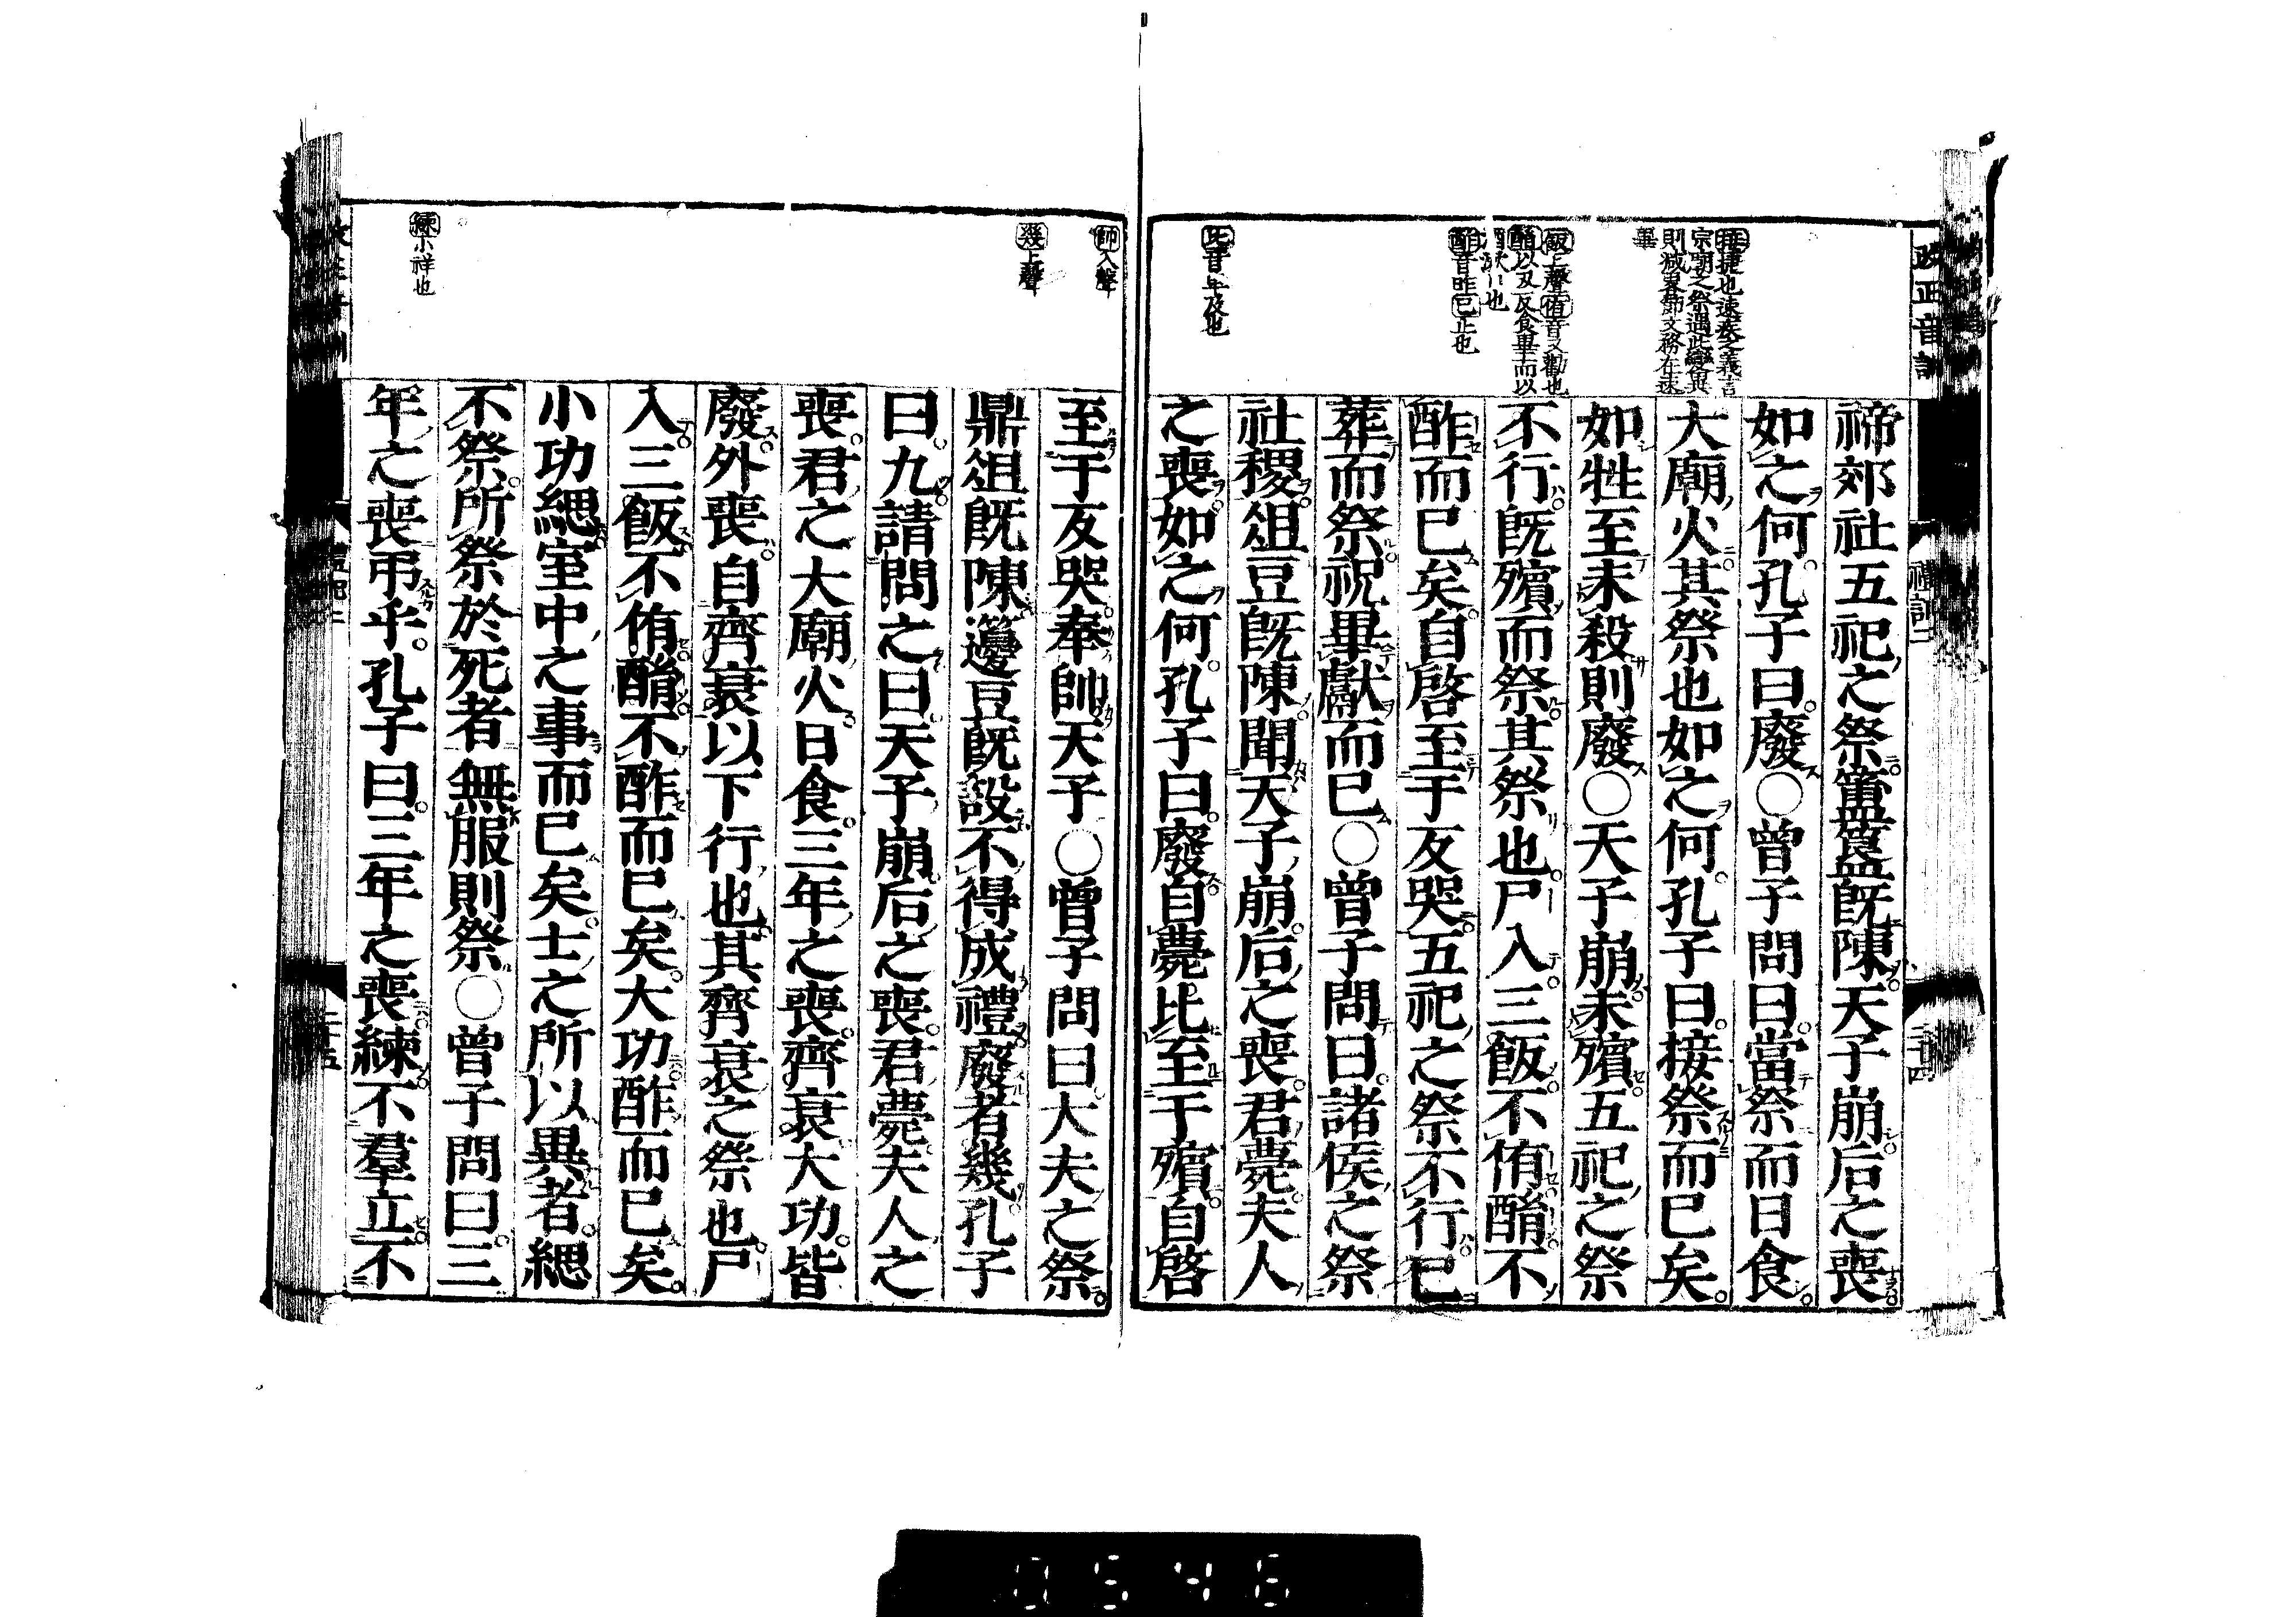 改正音訓
禮記二
二十四
接捷也速疾之義言
宗廟之祭遇此變異
則減畧節文務在速
畢
飯上聲侑音又勸也
酳以刄反食畢而以
酒漱口也
酢音昨已止也
比音卑及也
禘郊社五祀之祭簠簋既陳天子崩后之喪
如之何孔子曰廢○曾子問曰當祭而日食
大廟火其祭也如之何孔子曰接祭而已矣
如牲至未殺則廢○天子崩未殯五祀之祭
不行既殯而祭其祭也尸入三飯不侑酳不
酢而已矣自啓至于反哭五祀之祭不行已
葬而祭祝畢獻而已○曾子問曰諸侯之祭
社稷俎豆既陳聞天子崩后之喪君薨夫人
之喪如之何孔子曰廢自薨比至于殯自啓
帥入聲
幾上聲
練小祥也
至于反哭奉帥天子○曾子問曰大夫之祭
鼎俎既陳籩豆既設不得成禮廢者幾孔子
曰九請問之曰天子崩后之喪君薨夫人之
喪君之大廟火日食三年之喪齊衰大功皆
廢外喪自齊衰以下行也其齊衰之祭也尸
入三飯不侑酳不酢而已矣大功酢而已矣
小功緦室中之事而已矣士之所以異者緦
不祭所祭於死者無服則祭○曾子問曰三
年之喪弔乎孔子曰三年之喪練不羣立不
禮記二
二十五
0546